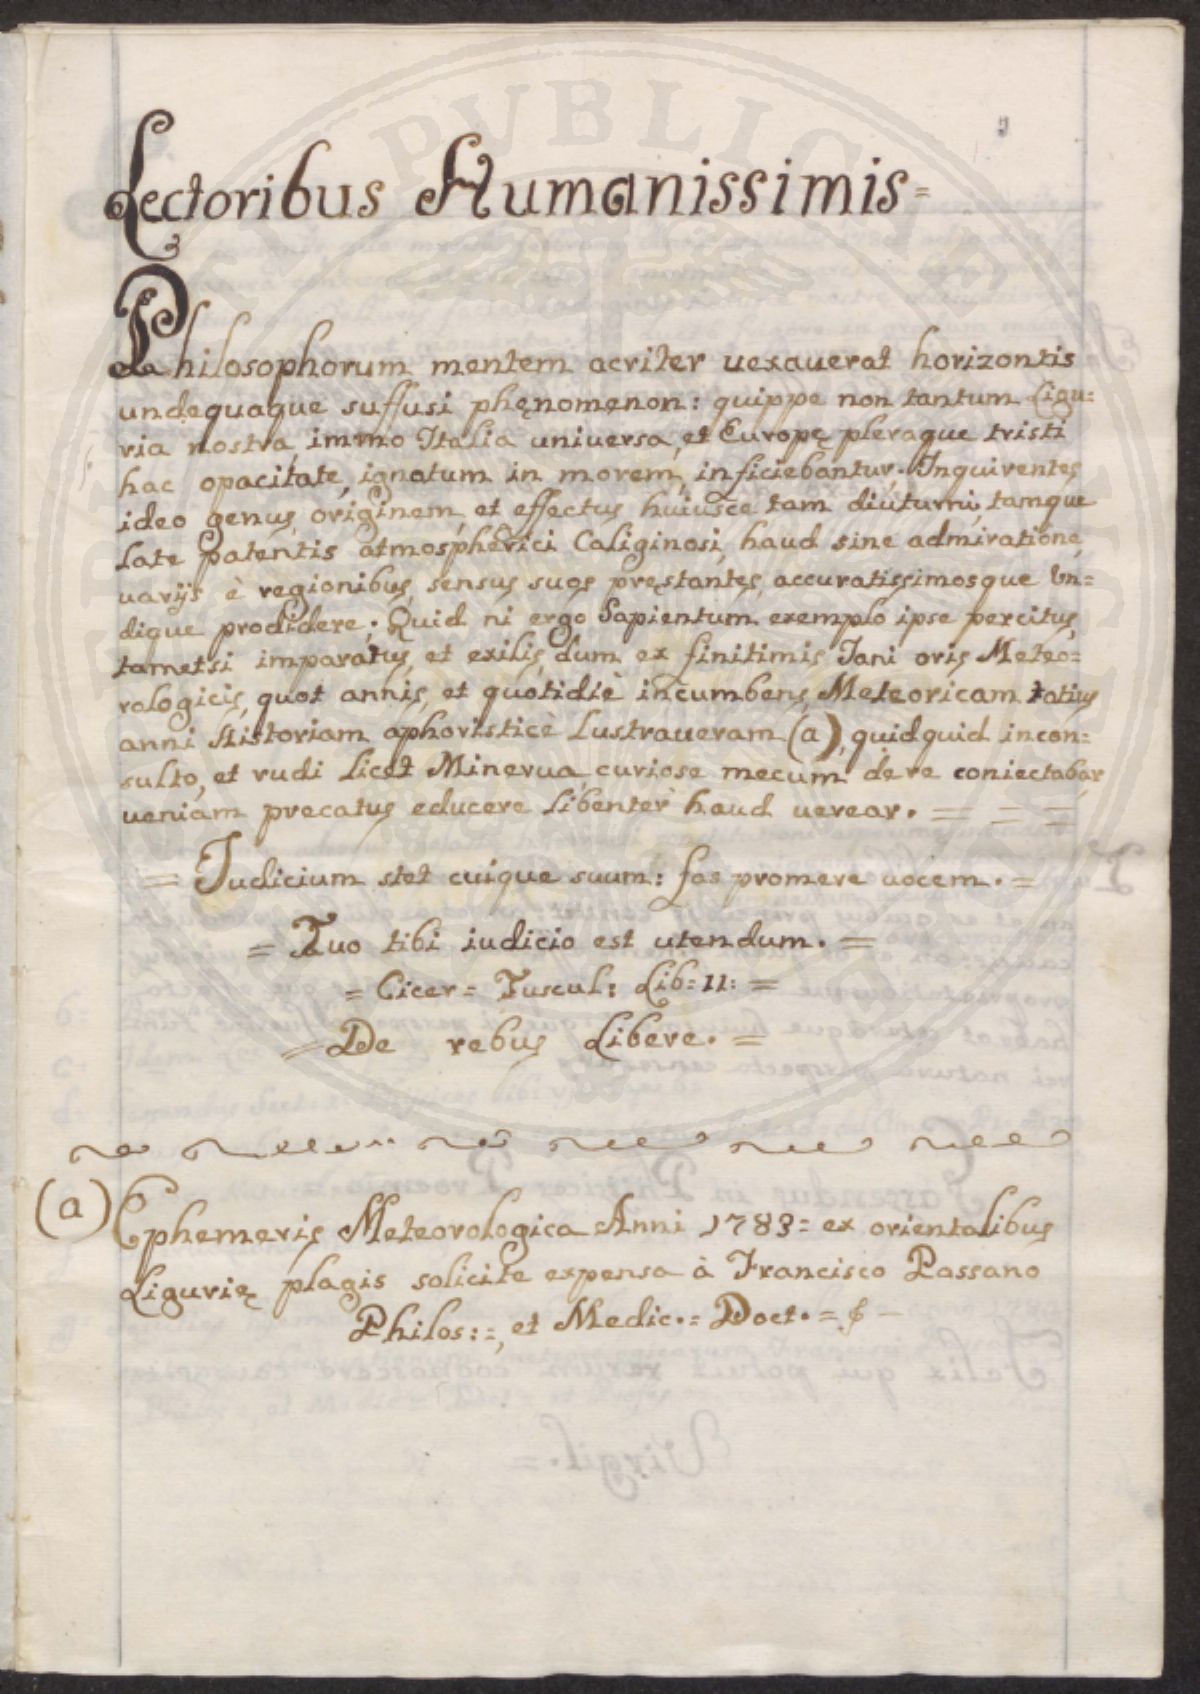 Lectoribus Humanissimis =
Philosophorum mentem acriter uexauerat horizontis
undequaque suffusi phęnomenon: quippe non tantum Ligu=
ria nostra, immo Italia uniuersa, et Europę pleraque tristi
hac opacitate, ignatum in morem, inficiebantur. Inquirentes
ideo genus, originem, et effectus huiusce tam diuturni, tamque
late patentis atmosphęrici Caliginosi, haud sine admiratione,
uarijs è regionibus, sensus suos pręstantes, accuratissimosque un=
dique prodidere; Quid ni ergo Sapientum exemplo ipse percitus,
tametsi imparatus, et exilis, dum ex finitimis Jani oris Meteo=
rologicis, quot annis, et quotidiè incumbens, Meteoricam totius
anni Historiam aphoristicè Lustraueram (a), quidquid incon=
sulto, et rudi licet Minerua, curiose mecum de re coniectabar
ueniam precatus educere libenter haud uerear. = = =
= Iudicium stet cuique suum: fas promere uocem. =
= Tuo tibi iudicio est utendum. =
= Cicer = Tuscul: Lib: II: =
= De rebus Libere. =
(a) Ephemeris Meteorologica Anni 1783 = ex orientalibus
Ligurię plagis solicite expensa à Francisco Passano
Philos: =, et Medic. = Doct. =